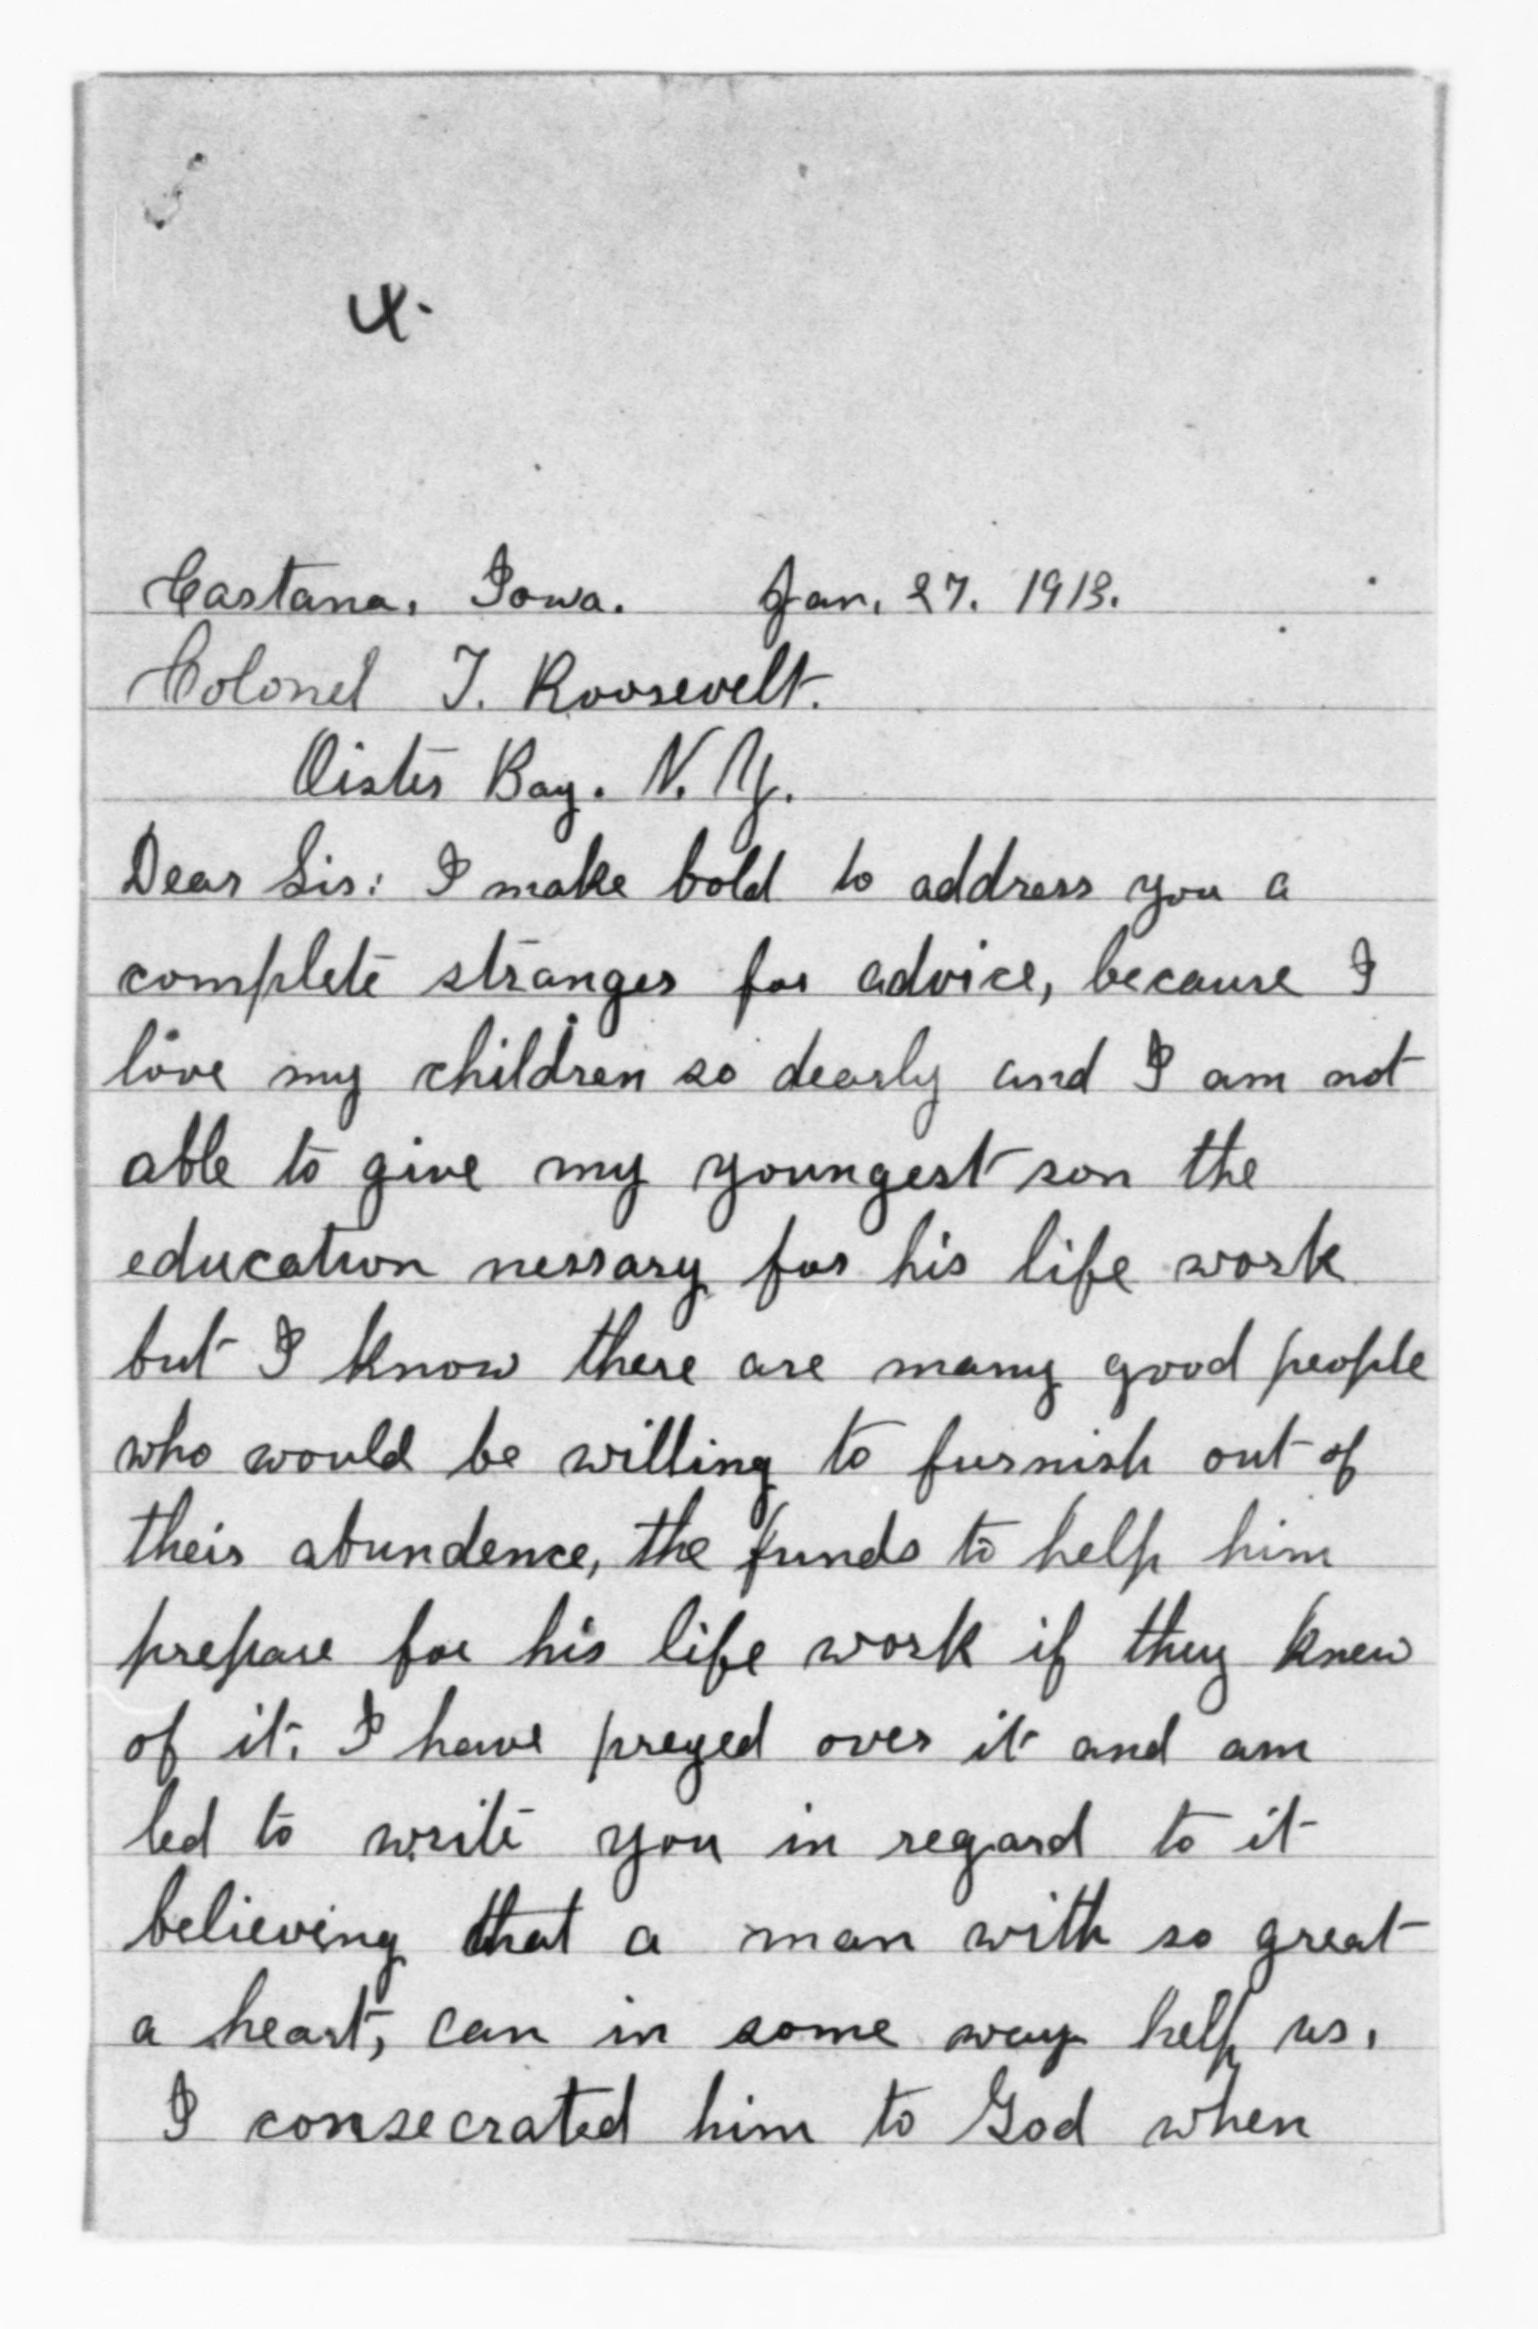 Castana, Iowa. Jan, 27. 1913.
Colonel T. Roosevelt.
Oister Bay. N. Y.
Dear Sir: I make bold to address you a
complete stranger for advice, because I
love my children so dearly and I am not
able to give my youngest son the
education nessary for his life work
but I know there are many good people
who would be willing to furnish out of
their abundence, the funds to help him
prepare for his life work if they knew
of it. I have preyed over it and am
led to write you in regard to it
believing that a man with so great
a heart, can in some way help us.
I consecrated him to God when